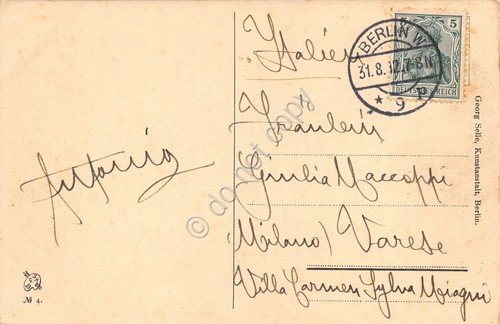 Italien
BERLIN W
31.8.12.7-8N.
* 9 a
5
DEUTSCHES REICH
Fräulein
Giulia Maccoppi
(Milano) Varese
Villa Carmen Sylva Miogni
Antonio
Georg Selle, Kunstanstalt, Berlin.
№ 4.
© do not copy